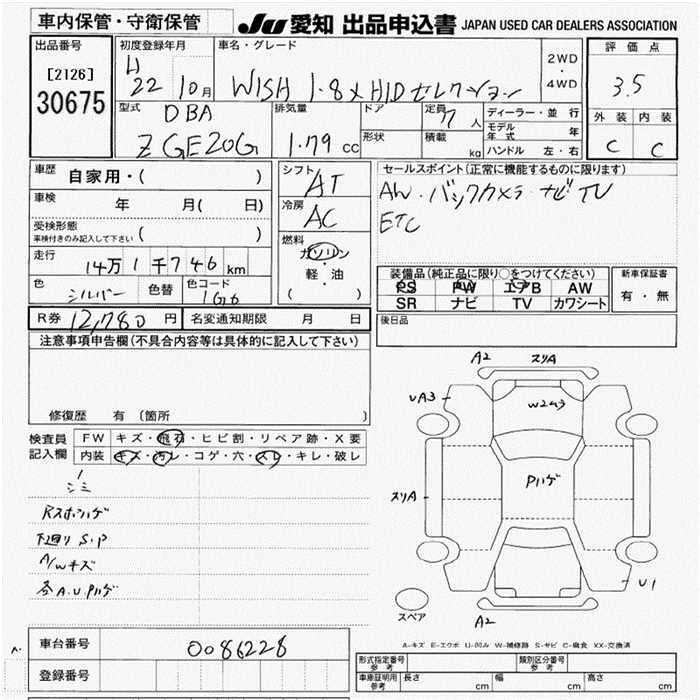 車内保管・守衛保管
JU 愛知 出品申込書 JAPAN USED CAR DEALERS ASSOCIATION
出品番号
[2126]
30675
初度登録年月
H
22 10月
車名・グレード
WISH 1.8X HIDセレクション
2WD
・
4WD
評価点
3.5
外装 内装
C C
型式
DBA
ZGE20G
排気量
1.79 cc
ドア
形状
定員 7 人
積載 kg
ディーラー・並行
モデル年式 年
ハンドル 左・右
車歴 自家用・( )
車検 年 月( 日)
受検形態
車検付きのみ記入して下さい ( )
走行 14万1千746km
色 シルバー 色替 色コード 1G6
シフト AT
冷房 AC
燃料
ガソリン
・
軽・油
( )
セールスポイント(正常に機能するものに限ります)
AW・バックカメラ・ナビ TV
ETC
装備品(純正品に限り○をつけてください)
PS PW エアB AW
SR ナビ TV カワシート
新車保証書
有・無
R券 12,780 円 名変通知期限 月 日
後日品
注意事項申告欄(不具合内容等は具体的に記入して下さい)
修復歴 有(箇所 )
検査員記入欄
FW キズ・飛石・ヒビ割・リペア跡・X要
内装 キズ・汚レ・コゲ・穴・スレ・キレ・破レ
シミ
下廻り S.P
A/Wキズ
各A.U.Pハゲ
A2 スリA
UA3
W2
Pハゲ
スリA
U1
A2
スペア
A-キズ E-エクボ U-凹み W-補修跡 S-サビ C-腐食 XX-交換済
車台番号 0086228
登録番号
型式指定番号 参考 類別区分番号 参考
車庫証明用 参考 長さ cm 幅 cm 高さ cm